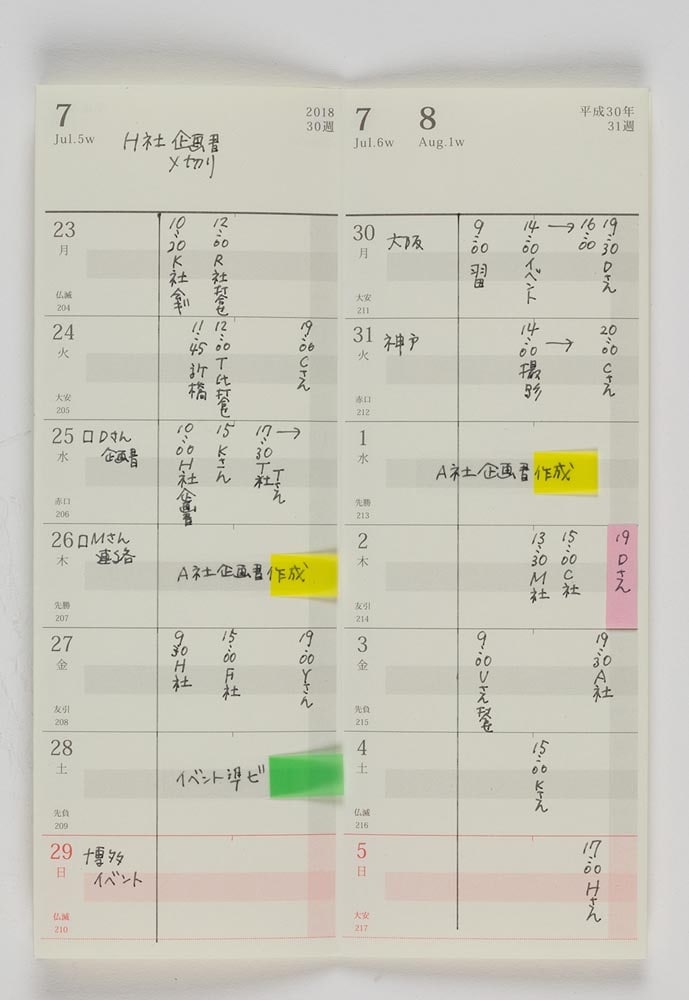 7
Jul.5w
H社 企画書
〆切り
2018
30週
23
月
仏滅
204
10:20 K社
12:00 R社打合せ
24
火
大安
205
11:45 新橋
12:00 T社打合せ
19:00 Cさん
25
水
赤口
206
□Dさん
企画書
10:00 H社企画書
15 Kさん
17:30 → T社Tさん
26
木
先勝
207
□Mさん
連絡
A社企画書作成
27
金
友引
208
9:30 H社
15:00 F社
19:00 Yさん
28
土
先負
209
イベント準ビ
29
日
仏滅
210
博多
イベント
7
Jul.6w
8
Aug.1w
平成30年
31週
30
月
大安
211
大阪
9:00
14:00 → 16:00 イベント
19:30 Dさん
31
火
赤口
212
神戸
14:00 → 撮影
20:00 Cさん
1
水
先勝
213
A社企画書作成
2
木
友引
214
13:30 M社
15:00 C社
19 Dさん
3
金
先負
215
9:00 Uさん
19:30 A社
4
土
仏滅
216
15:00 Kさん
5
日
大安
217
17:00 Hさん